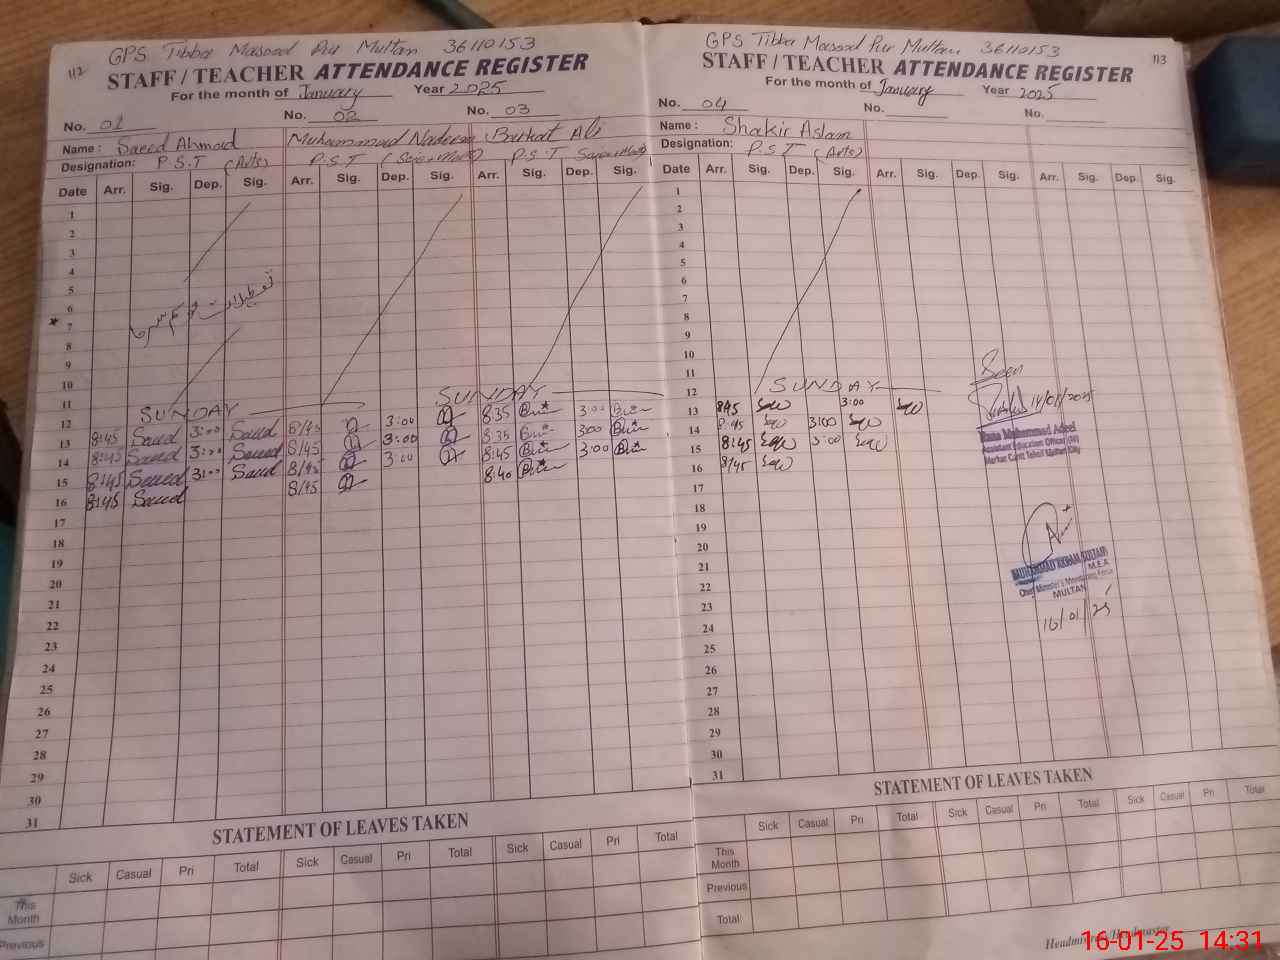 112
GPS Tibba Masood Pur Multan 36110153
STAFF / TEACHER ATTENDANCE REGISTER
For the month of January Year 2025
No. 01 No. 02 No. 03
Name : Saeed Ahmad Muhammad Nadeem Barkat Ali
Designation: P.S.T (Arts) P.S.T P.S.T
Date Arr. Sig. Dep. Sig. Arr. Sig. Dep. Sig. Arr. Sig. Dep. Sig.
1
2
3
4
5
6
تعطیلات موسم سرما
7
8
9
10
11
SUNDAY SUNDAY
12
13 8:45 Saeed 3:00 Saeed 8/45 3:00 8:35 3:00
14 8:45 Saeed 3:00 Saeed 8/45 3:00 8:35 3:00
15 8:45 Saeed 3:00 Saeed 8/45 3:00 8:45 3:00
16 8:45 Saeed 8/45 8:40
17
18
19
20
21
22
23
24
25
26
27
28
29
30
31
STATEMENT OF LEAVES TAKEN
Sick Casual Pri Total Sick Casual Pri Total Sick Casual Pri Total
This Month
Previous
113
GPS Tibba Masood Pur Multan 36110153
STAFF / TEACHER ATTENDANCE REGISTER
For the month of January Year 2025
No. 04 No. No.
Name : Shakir Aslam
Designation: P.S.T (Arts)
Date Arr. Sig. Dep. Sig. Arr. Sig. Dep. Sig. Arr. Sig. Dep. Sig.
1
2
3
4
5
6
7
8
9
10
11
12 SUNDAY
13 8:45 3:00
14 8:45 3:00
15 8:45 3:00
16 8/45
17
18
19
20
21
22
23
24
25
26
27
28
29
30
31
Seen
14/01/2025
Rana Muhammad Adeel
Assistant Education Officer (M)
Markaz Cantt Tehsil Multan City
MUHAMMAD AKRAM SULTAN
M.E.A
Chief Minister's Monitoring Force
MULTAN
16/01/25
STATEMENT OF LEAVES TAKEN
Sick Casual Pri Total Sick Casual Pri Total Sick Casual Pri Total
This Month
Previous
Total
Headmistress/Headmaster
16-01-25 14:31